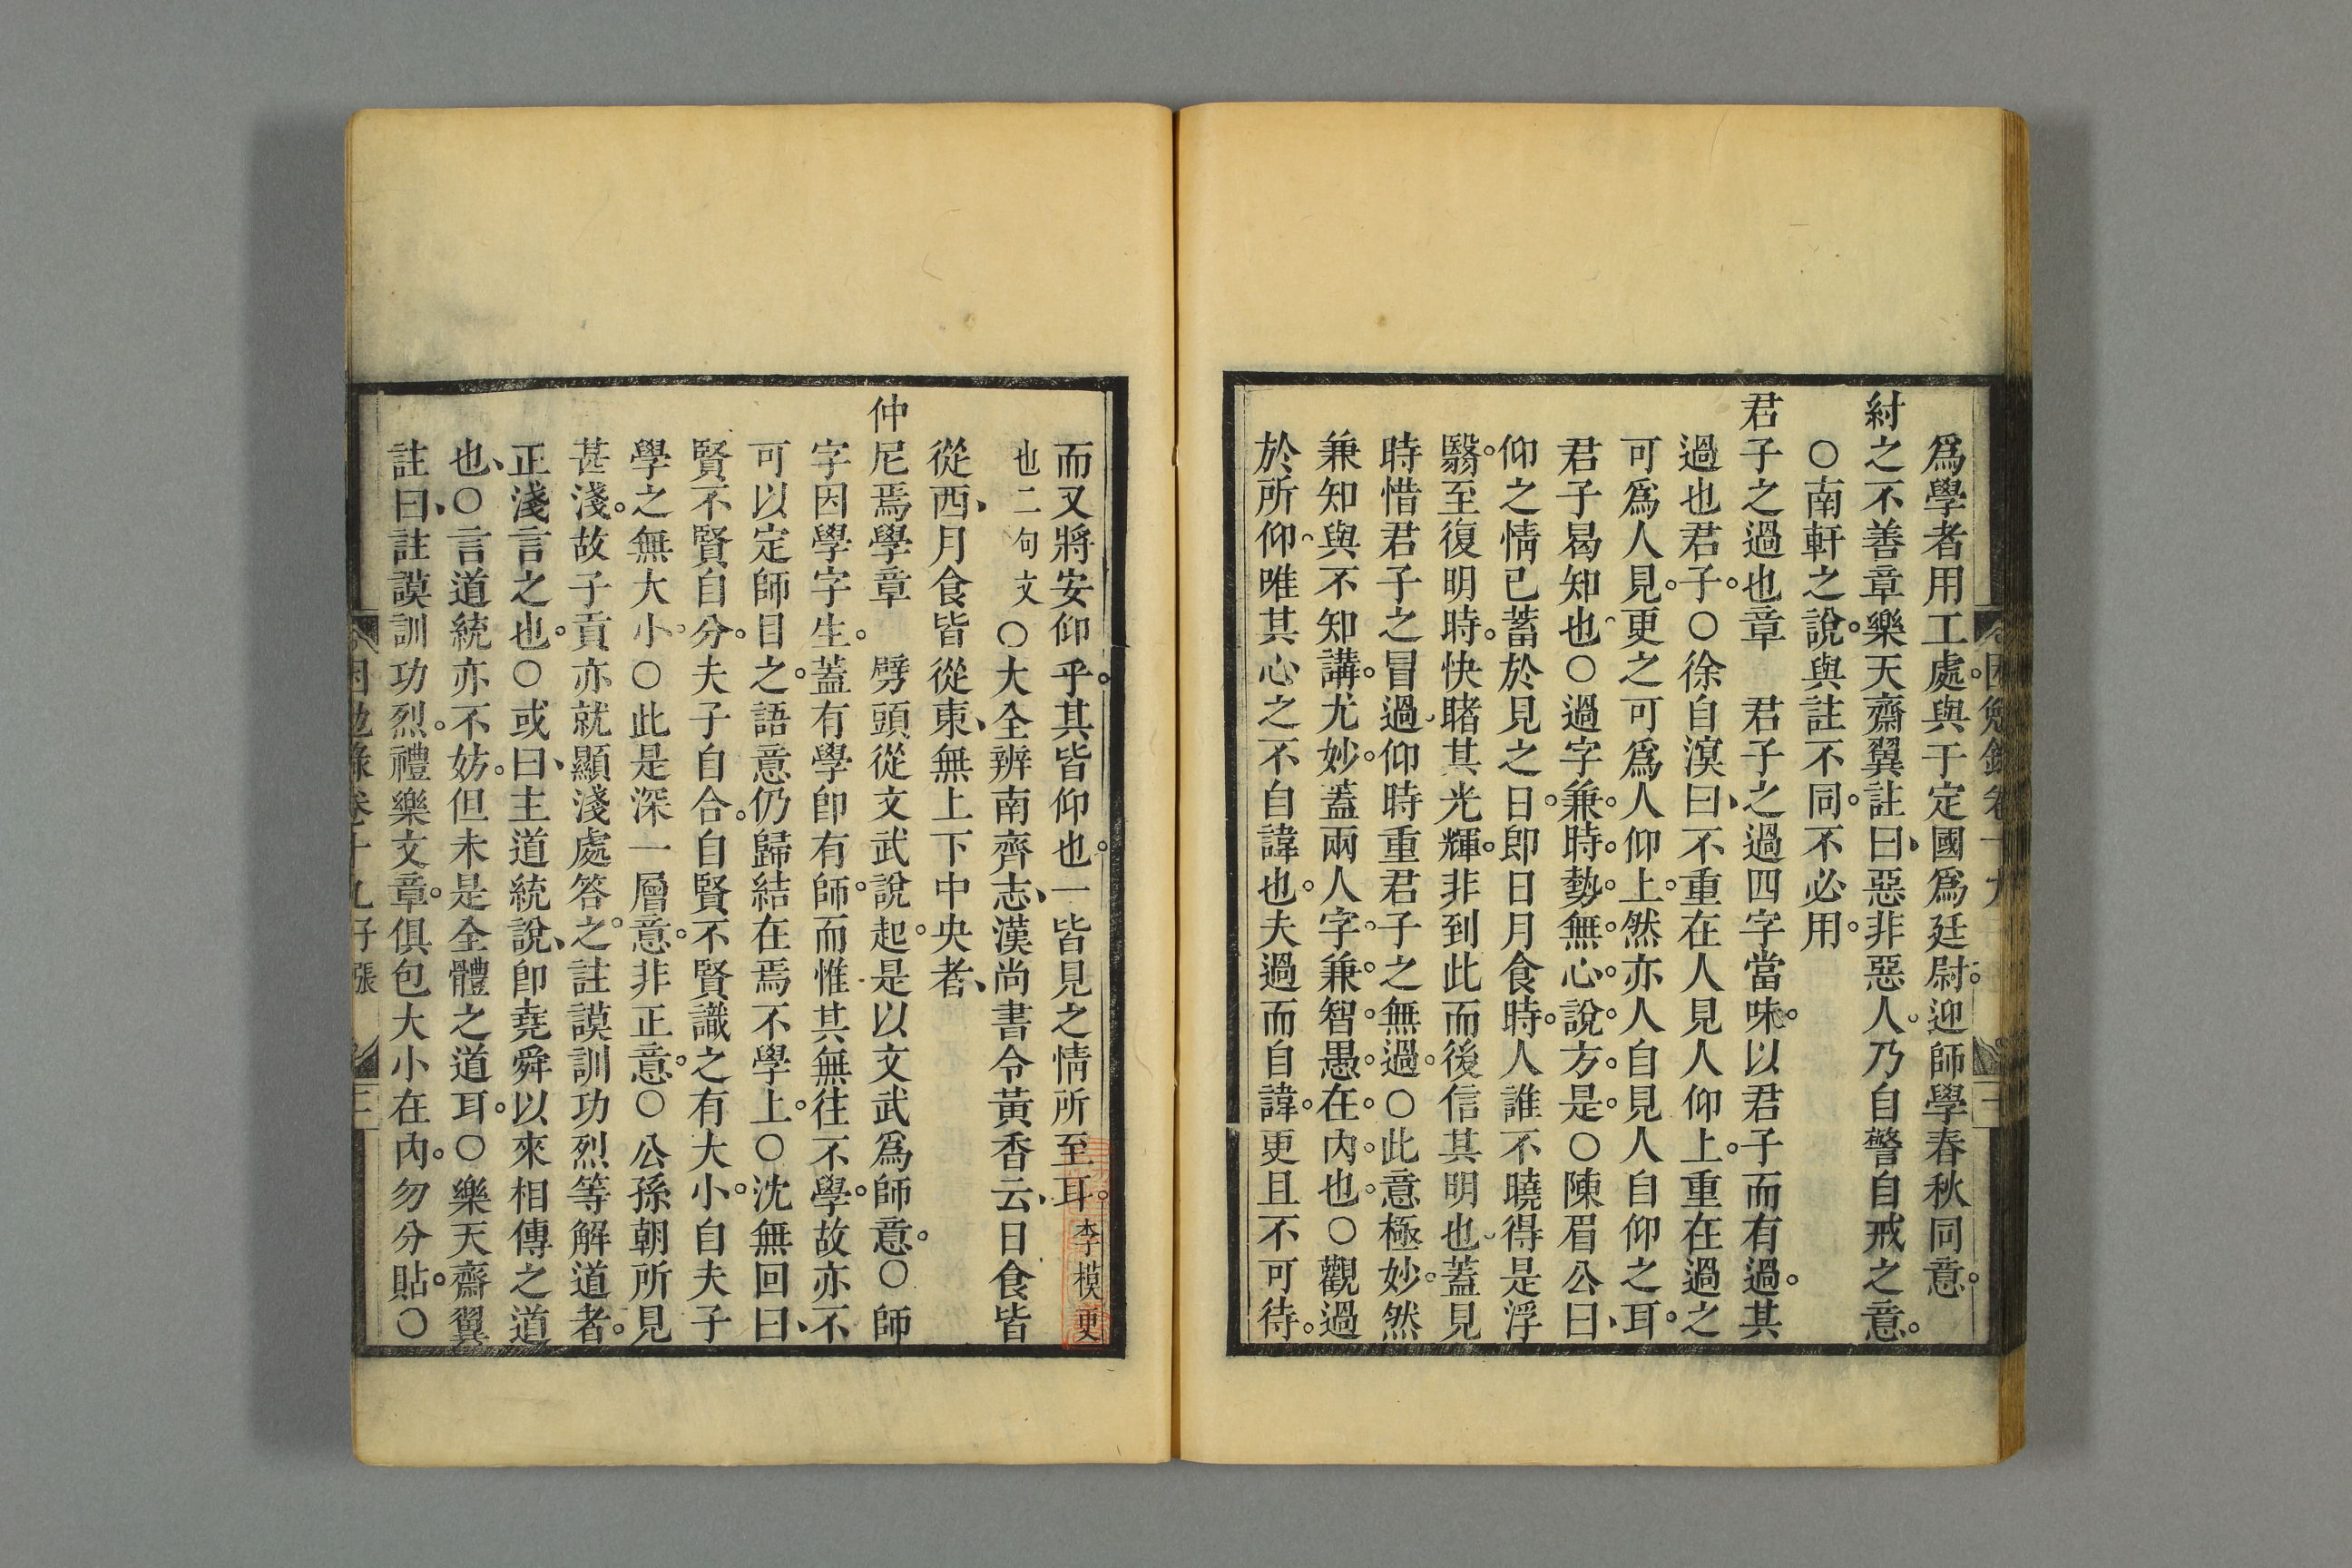 爲學者用工處與于定國爲廷尉迎師學春秋同意
紂之不善章樂天齋翼註曰惡非惡人乃自警自戒之意
○南軒之說與註不同不必用
君子之過也章 君子之過四字當味以君子而有過其
過也君子○徐自溟曰不重在人見人仰上重在過之
可爲人見更之可爲人仰上然亦人自見人自仰之耳
君子曷知也○過字兼時勢無心說方是○陳眉公曰
仰之情已蓄於見之日卽日月食時人誰不曉得是浮
翳至復明時快睹其光輝非到此而後信其明也蓋見
時惜君子之冒過仰時重君子之無過○此意極妙然
兼知與不知講尤妙蓋兩人字兼智愚在內也○觀過
於所仰唯其心之不自諱也夫過而自諱更且不可待
而又將安仰乎其皆仰也一皆見之情所至耳李模更
也二句文○大全辨南齊志漢尚書令黃香云日食皆
從西月食皆從東無上下中央者
仲尼焉學章 劈頭從文武說起是以文武爲師意○師
字因學字生蓋有學卽有師而惟其無往不學故亦不
可以定師目之語意仍歸結在焉不學上○沈無回曰
賢不賢自分夫子自合自賢不賢識之有大小自夫子
學之無大小○此是深一層意非正意○公孫朝所見
甚淺故子貢亦就顯淺處答之註謨訓功烈等解道者
正淺言之也○或曰主道統說卽堯舜以來相傳之道
也○言道統亦不妨但未是全體之道耳○樂天齋翼
註曰註謨訓功烈禮樂文章俱包大小在內勿分貼○
困勉錄卷十九子張 三